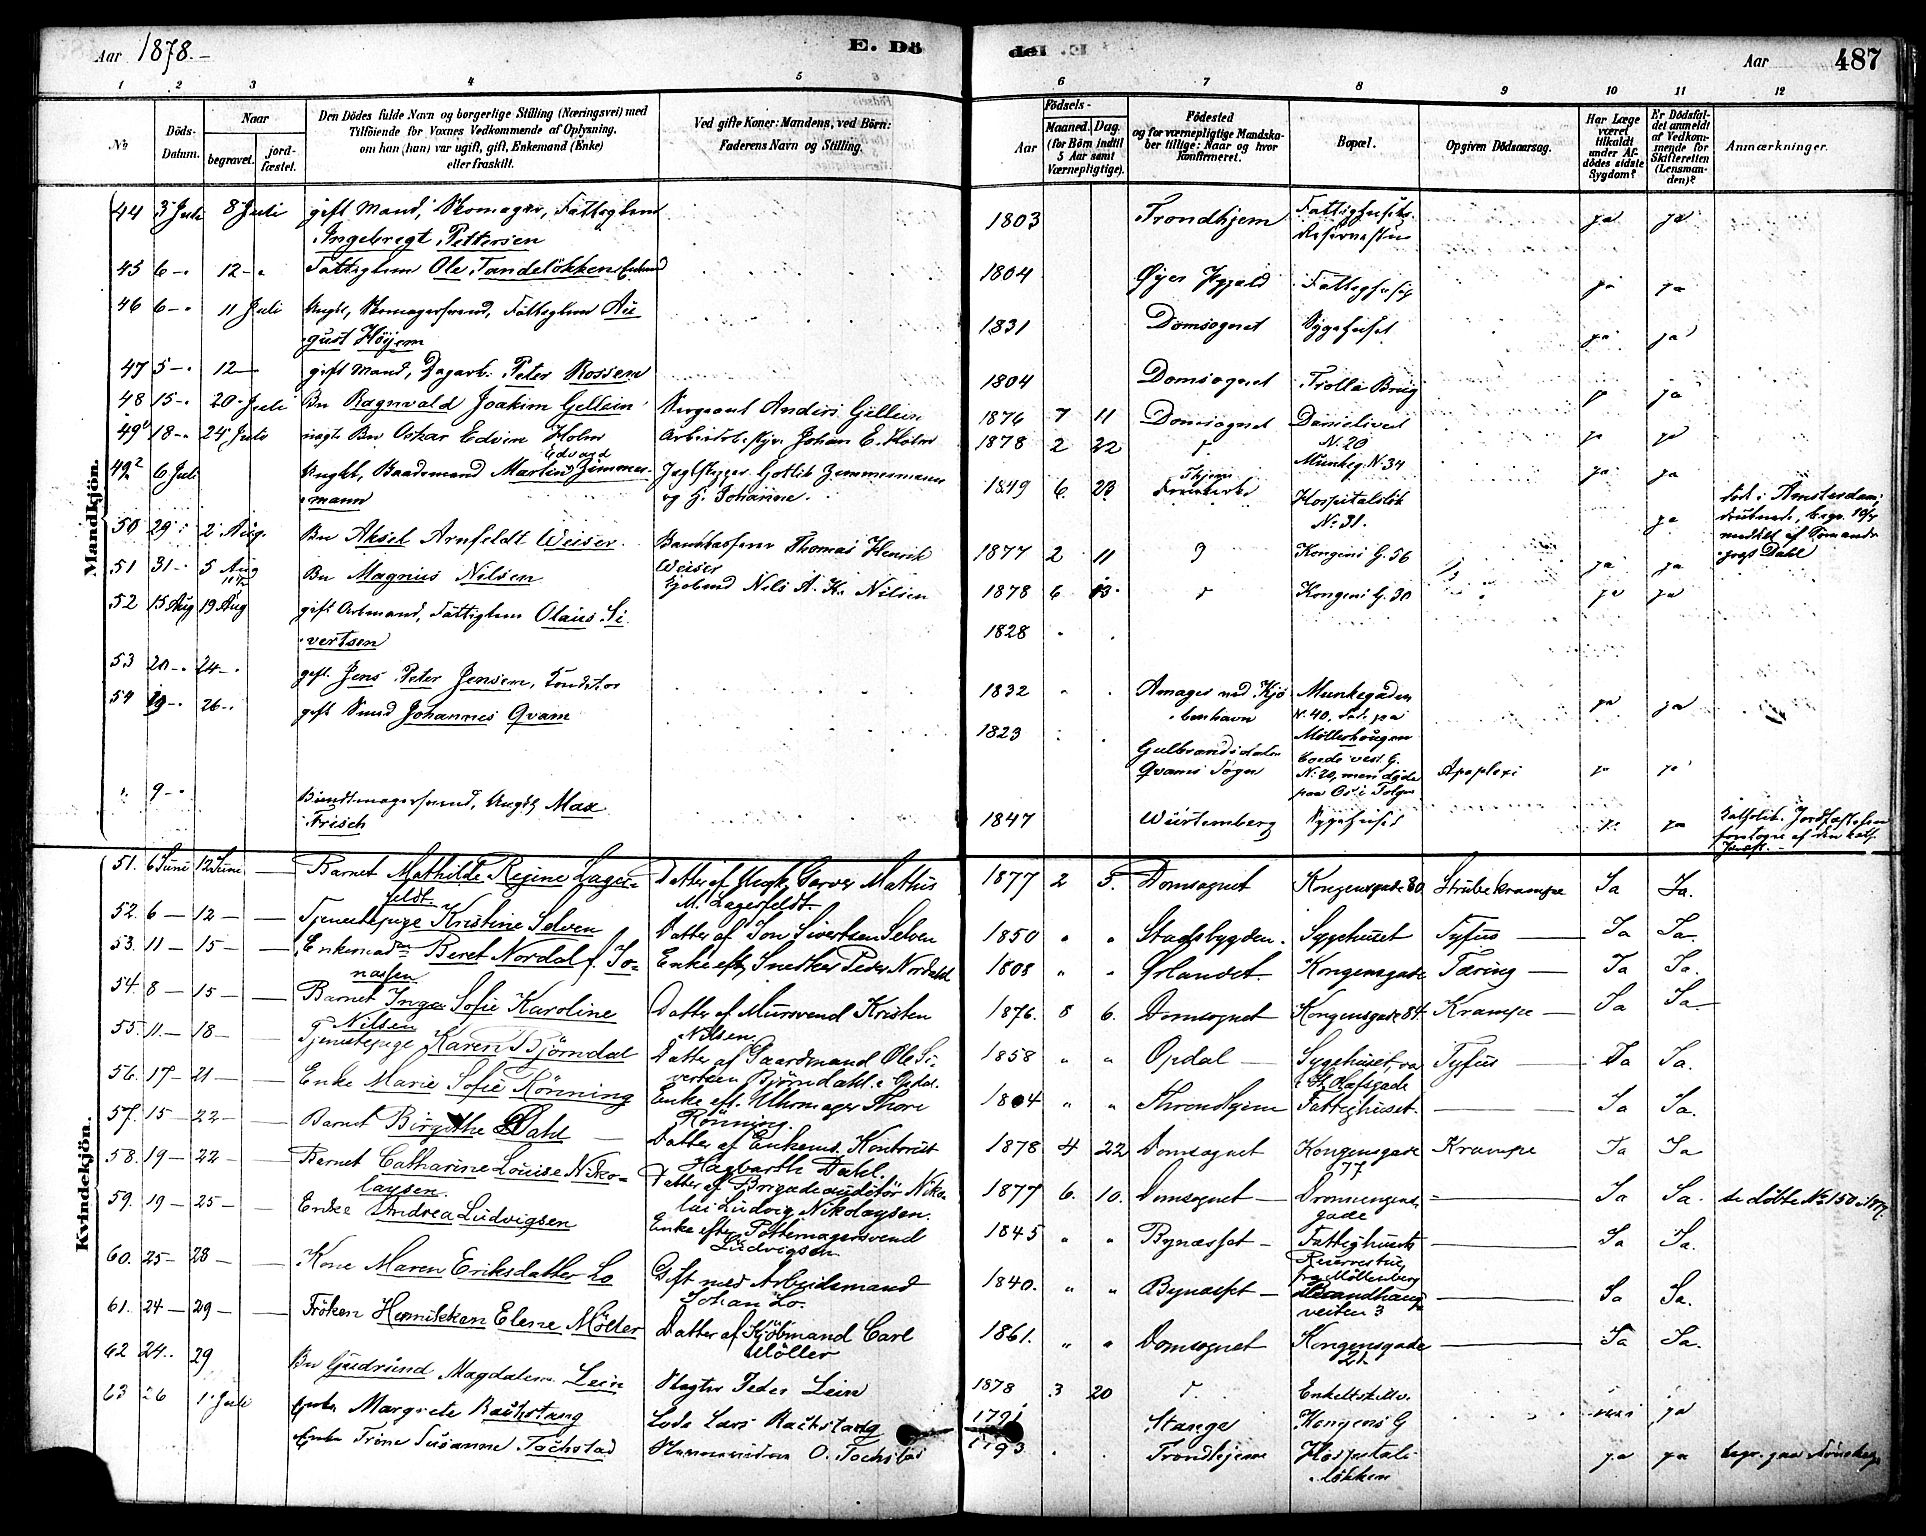 Aar 1878.-
E. Dö
del E.
Aar 487
1 2 3 4 5 6 7 8 9 10 11 12
No
Döds-
Datum.
Naar
begravet. jord-
fæstet.
Den Dödes fulde Navn og borgerlige Stilling (Næringsvei) med
Tilföiende for Voxnes Vedkommende af Oplysning,
om han (hun) var ugift, gift, Enkemand (Enke)
eller fraskilt.
Ved gifte Koner: Mandens, ved Börn:
Faderens Navn og Stilling.
Födsels-
Aar Maaned. Dag.
(for Börn indtil
5 Aar samt
Værnepligtige).
Födested
og for værnepligtige Mandska-
ber tillige: Naar og hvor
konfirmeret.
Bopæl.
Opgiven Dödsaarsag.
Har Læge
været
tilkaldt
under Af-
dödes sidste
Sygdom?
Er Dödsfal-
det anmeldt
af Vedkom-
mende for
Skifteretten
(Lensman-
den)?
Anmærkninger.
Mandkjön.
44 3 Juli 8 Juli gift Mand, Skomager, Fattiglem 1803 Trondhjem Fattighusets ja ja
Ingebregt Pettersen
45 6 -" 12 -" Fattiglem Ole Tandelökken 1804 Öyer Fattighuset ja ja
46 6 -" 11 Juli Ungk, Skomagersvend, Fattiglem Au- 1831 Domsognet Sygehuset ja ja
gust Höyem
47 5 -" 12 - gift Mand, Dagarb. Peter Rossen 1804 Domsognet Trolla Brug ja ja
48 15 -" 20 Juli Bn Ragnvald Joakim Gellein Sergeant Anders Gellein 1876 7 11 Domsognet ja ja
49¹ 18 -" 24 Juli Bn Oskar Edvin Holm Johan E. Holm 1878 2 22 N. 20 ja ja
49² 6 Juli Ungk, Baadsmand Martin Edvard Zimmer- Gotlib Zimmermann 1849 6 23 Munkeg. N. 34 ja ja
mann og H. Johanne. Hospitalslök
N. 31.
50 29 2 Aug. Bn Aksel Arnfeldt Weiser Bankkasserer Thomas Henrik 1877 2 11 Kongens G. 56 ja ja
Weiser
51 31 -" 5 Aug Bn Magnus Nilsen Nils A. K. Nilsen 1878 6 13 Kongens G. 30 ja ja
52 15 Aug 19 Aug gift Arbmand, Fattiglem Olaus Si- 1828
vertsen
53 20 -" 24 -" gift Jens Peter Jensen, 1832 Amager ved Kjö- Munkegaden ja ja
benhavn N. 40.
54 19 -" 26 -" gift Smed Johannes Qvam 1823 Gulbrandsdalen Möllerhougen
Qvams Sogn N. 20, men döde Apoplexi ja ja
" 9 -" Bundtmagersvend, Ungk Max 1847 Würtemberg Sygehuset ja ja Katholik. Jordfæstelsen
Frisch foretoges af den kath.
Kvindekjön.
51. 6 Juni 12 Juni — Barnet Mathilde Regine Lager- Datter af Garver Mathis 1877 2 5. Domsognet Kongensgade 80 Strubekrampe Ja Ja.
feldt. M. Lagerfeldt.
52. 6 — 12 — — Tjenestepige Kristine Selven Datter af Jon Sivertsen Selven 1850 " " Stadsbygden. Sygehuset Tyfus — Ja Ja.
53. 11 — 15 — — Enkemad. Beret Nordal f. Jo- Enke efter Snedker Peder Nordahl 1808 " " Ørlandet Kongensgade Tæring — Ja Ja.
nassen
54. 8 — 15 — — Barnet Inga Sofie Karoline Datter af Mursvend Kristen 1876. 8 6. Domsognet Kongensgade 84 Krampe — Ja Ja
Nilsen Nilsen.
55. 11 — 18 — Tjenestepige Karen Björndal Datter af Gaardmand Ole Si- 1858 " " Opdal — Sygehuset, Tyfus — Ja Ja.
vertsen Björndahl i Opdal. St. Olafsgade
56. 17 — 21 — — Enke Marie Sofie Rönning Enke eft. Uhrmager Thore 1804 " " Throndhjem Fattighuset — Ja Ja.
Rönning.
57. 15 — 22 — — Barnet Birgithe Dahl — Datter af Enkem. Kontorist 1878 4 22 Domsognet Kongensgade Krampe Ja Ja
Hagbarth Dahl. 77
58. 19 — 22 — — Barnet Catharine Louise Niko- Datter af Brigadeauditör Niko- 1877 6. 10. Domsognet — Dronningens- — Ja Ja. se döbte No 150 i 1877.
laysen. lai Ludvig Nikolaysen. gade
59. 19 — 25 — — Enke Andrea Ludvigsen Enke efter Pottemagersvend 1845 " " Bynæsset — Fattighusets — Ja Ja.
Ludvigsen. Reservestue
60. 25 — 28 — — Kone Maren Eriksdatter Lo Gift med Arbeidsmand 1840. " " Bynæsset — fra Möllenberg — Ja Ja.
Johan Lo. veiten 3
61. 24 — 29 — — Fröken Henrikken Elene Möller Datter af Kjöbmand Carl 1861. " " Domsognet Kongensgade — Ja Ja.
Möller 21.
62 24.. 29 Bn Gudrund Magdalena Lein Slagter Peder Lein 1878 3 20 ja
63 26 1 Juli Enke Margrete Rachstang Lods Lars Rachstang 1791 Stange Kongens G
Enke Trine Susanne Tachstad O. Tachstad 1793 Trondhjem Hospitals- ja ja
lökken